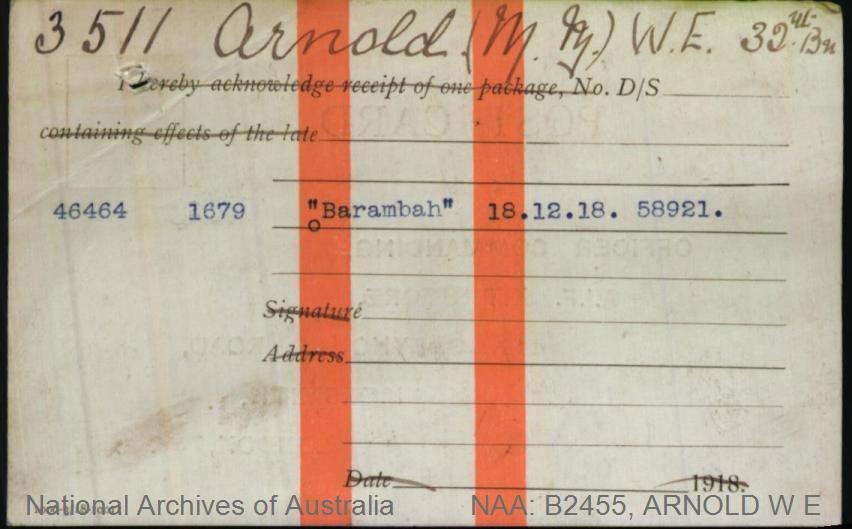 3511 Arnold (M.M.) W.E. 32nd Bn
I hereby acknowledge receipt of one package, No. D/S
containing effects of the late
46464 1679 "Barambah" 18.12.18. 58921.
Signature
Address
Date 1918.
National Archives of Australia NAA: B2455, ARNOLD W E